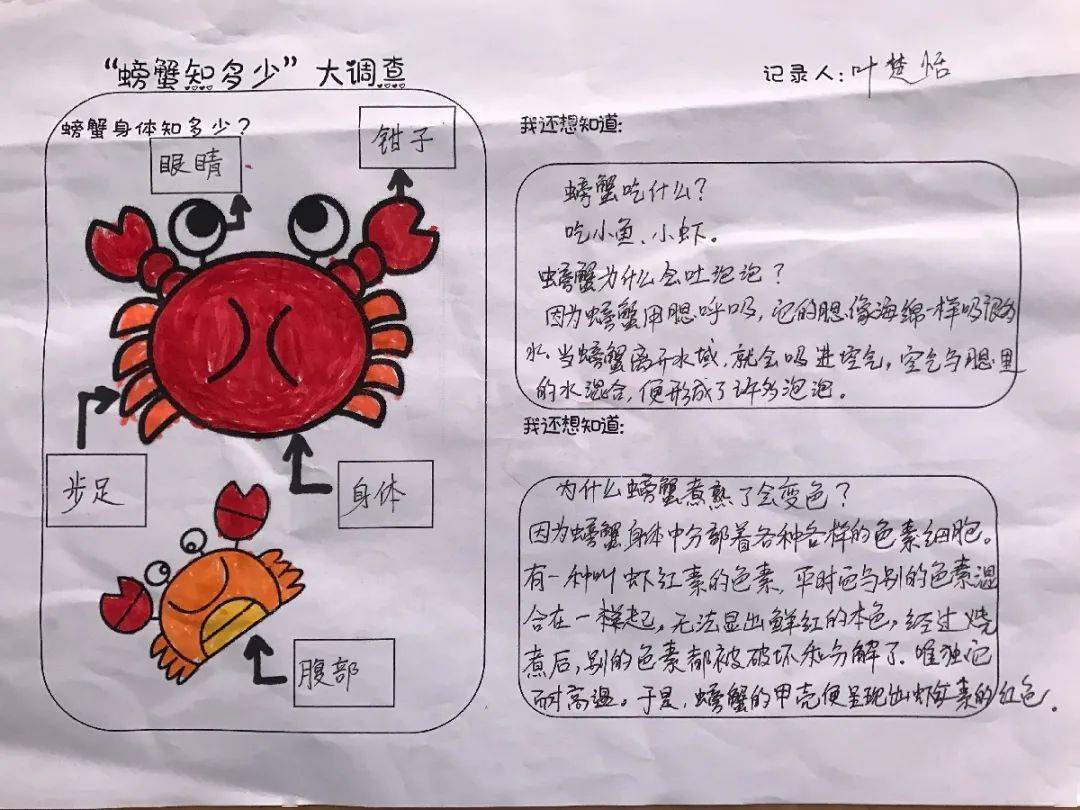 “螃蟹知多少”大调查
记录人:叶楚恬
螃蟹身体知多少?
眼睛
钳子
步足
身体
腹部
我还想知道:
螃蟹吃什么?
吃小鱼、小虾。
螃蟹为什么会吐泡泡?
因为螃蟹用腮呼吸,它的腮像海绵一样吸很多
水。当螃蟹离开水域,就会吸进空气,空气与腮里
的水混合,便形成了许多泡泡。
我还想知道:
为什么螃蟹煮熟了会变色?
因为螃蟹身体中分部着各种各样的色素细胞。
有一种叫虾红素的色素,平时它与别的色素混
合在一起,无法显出鲜红的本色,经过烧
煮后,别的色素都被破坏和分解了,唯独它
耐高温。于是,螃蟹的甲壳便呈现出虾红素的红色.